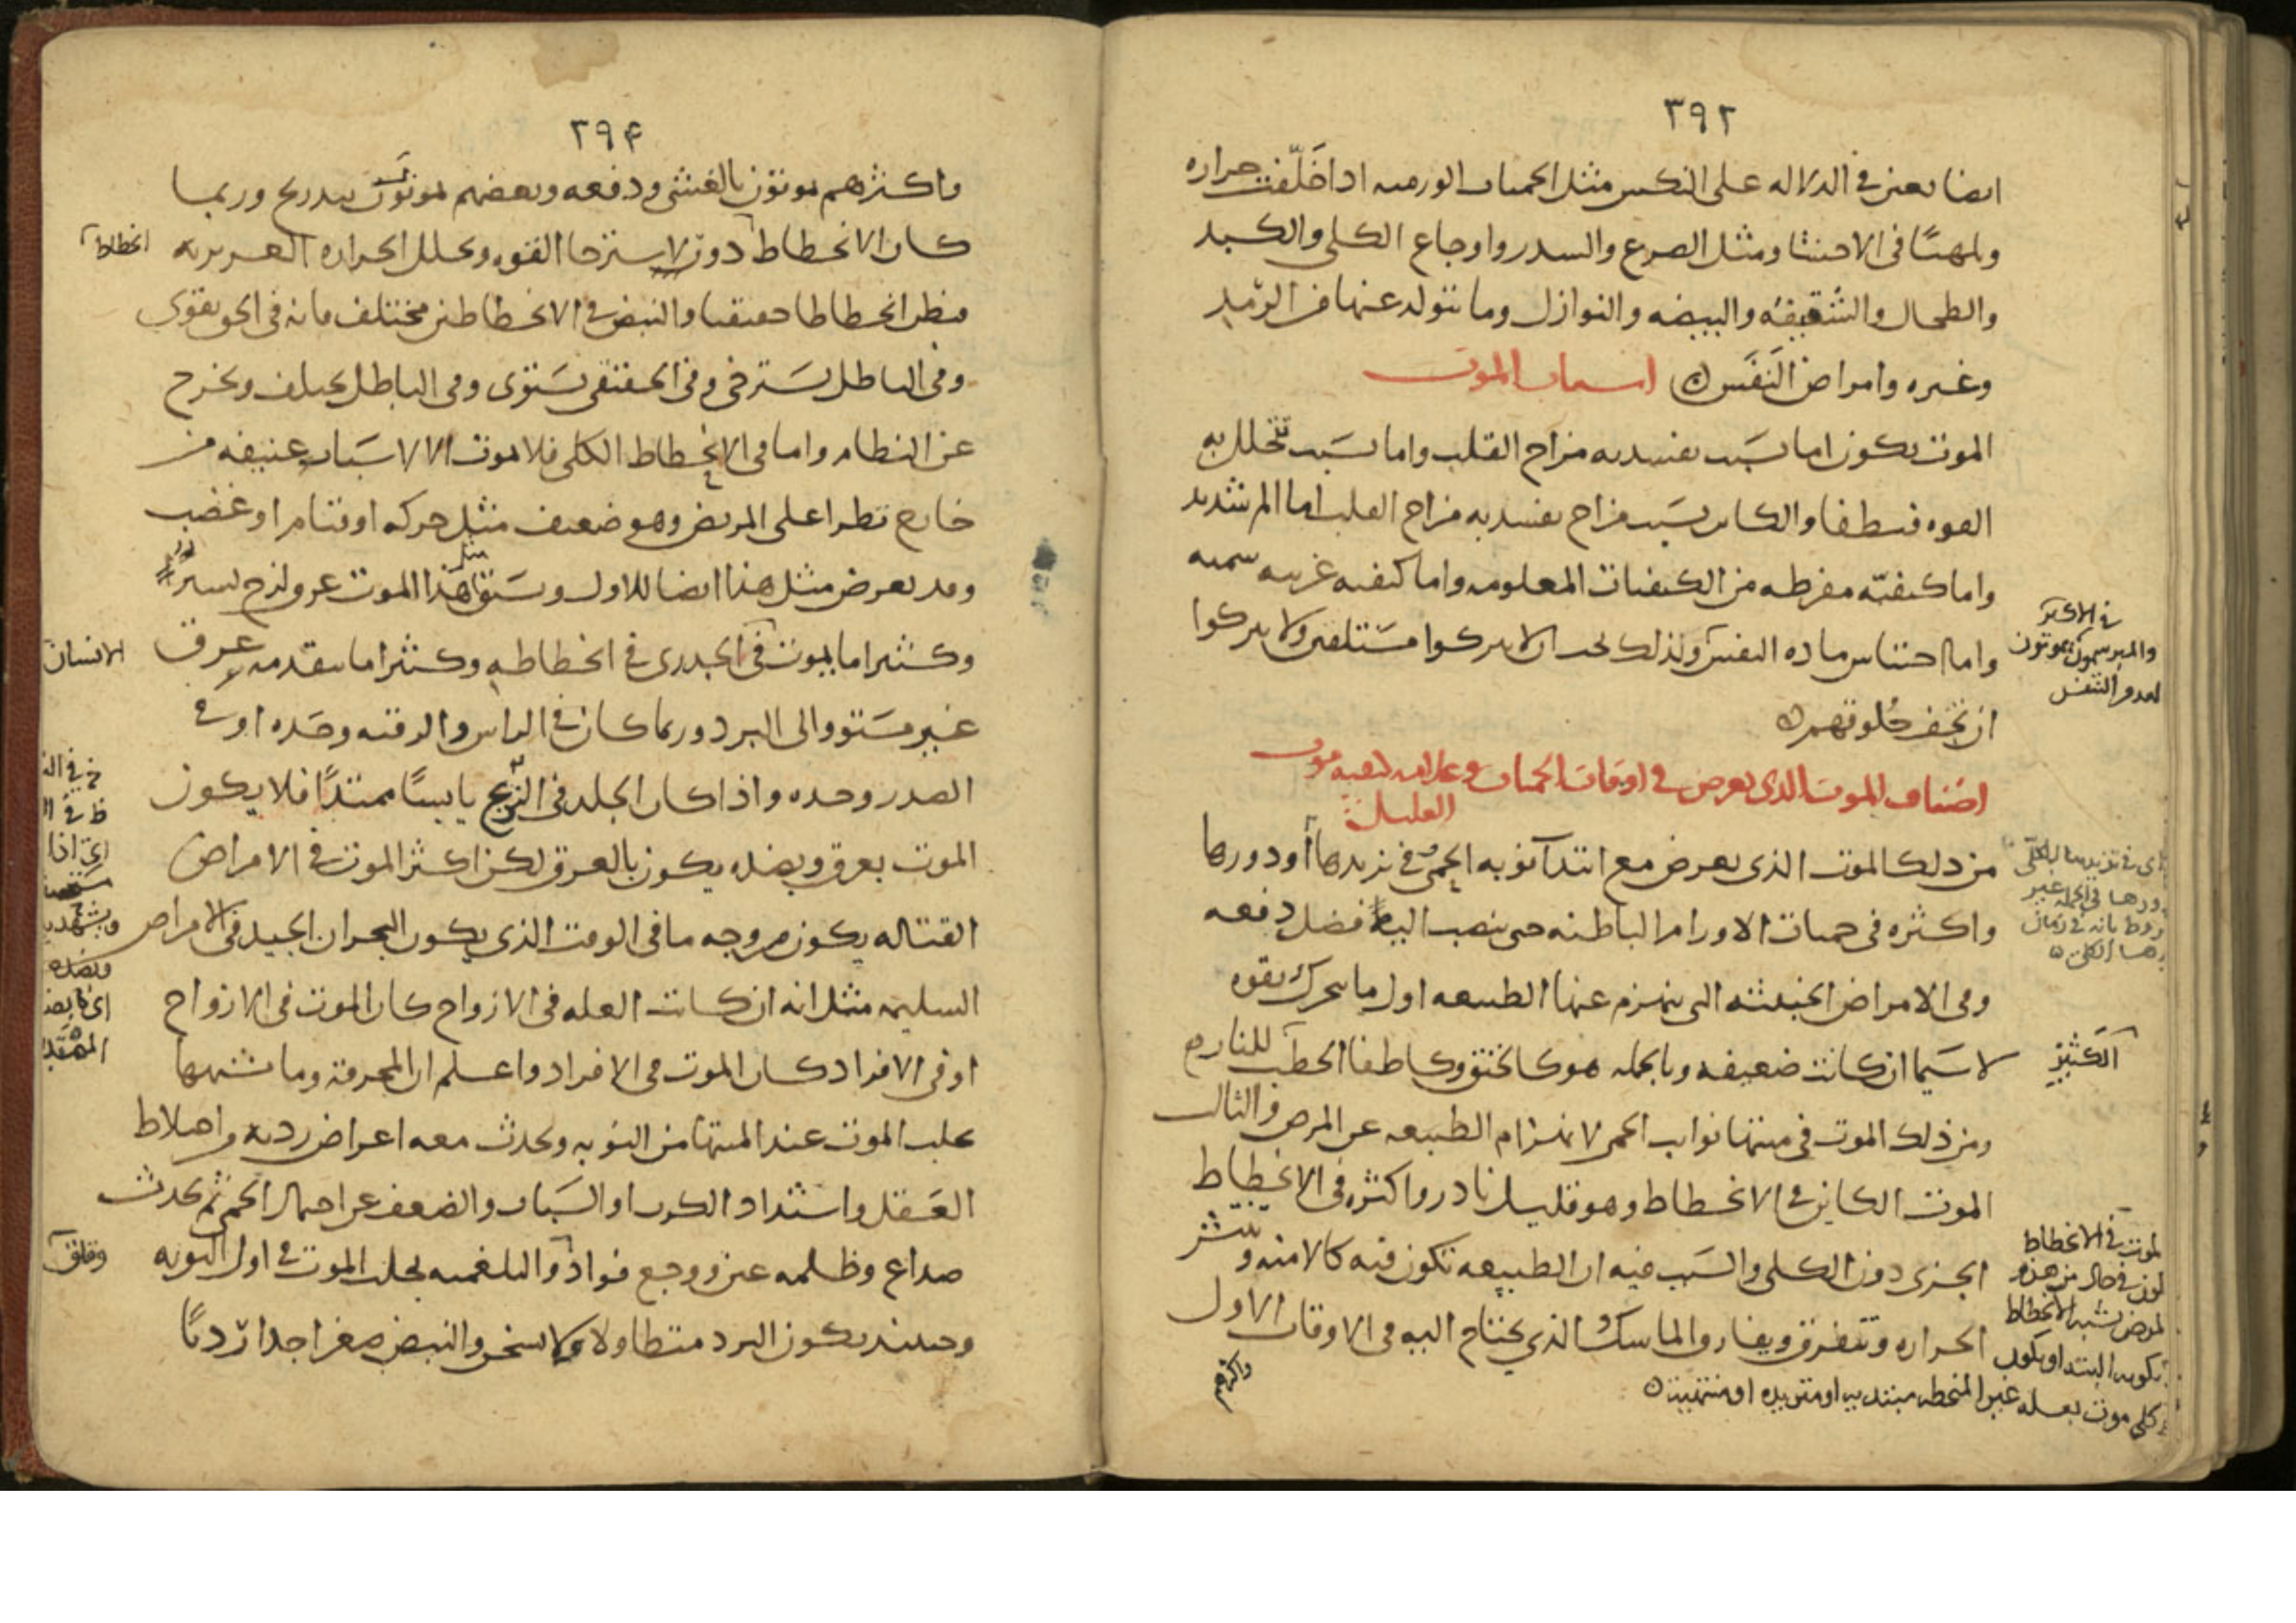 ٣٩٢
ايضا تعين في الدلاله على النكس مثل الحميات الورميه اذا خَلّفت حراره
ولهيبًا في الاحشا ومثل الصرع والسدر واوجاع الكلى والكبد
والطحال والشقيقه والبيضه والنوازل وما يتولد عنها من الرمد
وغيره وامراض النَفَس
اسباب الموت
الموت يكون اما بسَبب يفسد به مزاج القلب واما بسَبب تتحلل به
القوه فتطفا والكاين بسَبب مزاج يفسد به مزاج القلب اما الم شديد
واما كيفيّه مفرطه من الكيفيات المعلومه واما كيفيه غريبه سميه
واما احتباس ماده النفس ولذلك يجب ان لا يتركوا مستلقين ولا يتركوا
ان تجف حُلوقهم
في الاكثر
والمبرسمون يموتون
لعدم النفس
اصناف الموت الذى يعرض في اوقات الحميات وعلامه كيفيه موت
العليل
من ذلك الموت الذى يعرض مع ابتدا نوبه الحمى في تزيدها او دورها
واكثره في حميات الاورام الباطنه حين ينصب اليها فضل دفعه
وفي الامراض الخبيثه التى ينهزم عنها الطبيعه اول ما يتحرك بقوه
لا سَيما ان كانت ضعيفه وبالجمله هو كالخنق وكاطفا الحطب للنار
الكَثير
ومن ذلك الموت في منتها نوايب الحمى لانهزام الطبيعه عن المرض والثالث
الموت الكاين في الانحطاط وهو قليل نادر واكثره في الانحطاط
الجزى دون الكلى والسَبب فيه ان الطبيعه تكون فيه كالامنه وينتشر
الحراره وتتفرق ويفارق الماسك الذي يحتاج اليه في الاوقات الاول
لموت في الانحطاط
لمرض يشبه الانحطاط
كلى موت بعله غير المنحطه مبتديه او متزيده او منتهيه
واكثرهم
٣٩۴
واكثرهم يموتون بالغشى ودفعه وبعضهم يموتون بتدريج وربما
كان الانحطاط دون لاسترخا القوه وتحلل الحراره الغريزيه
انحطاطا
فيظن انحطاطا حقيقيا والنبض في الانحطاطين مختلف فانه في الحق يقوى
وفي الباطل يسَترخى وفي الحقيقى يسَتوى وفي الباطل يختلف ويخرج
عن النظام واما في الانحطاط الكلى فلا موت الا لاسَباب عنيفه من
خارج تطرا على المريض وهو ضعيف مثل حركه او قيام او غضب
وقد يعرض مثل هذا ايضا للاول ويسَبق مثل هذا الموت عرق لزج يسير
وكثيرا ما يموت في الجدرى في انحطاطه وكثيرا ما يتقدمه عرق
الانسان
غير مسَتو والى البرد وربما كان في الراس والرقبه وحَده او في
الصدر وحده واذا كان الجلد في النزع يابسًا ممتدًا فلا يكون
الموت بعرق وبضده يكون بالعرق لكن اكثر الموت في الامراض
القتاله يكون من وجه ما في الوقت الذى يكون البحران الجيد في الامراض
السليمه مثل انه ان كانت العله في الازواج كان الموت في الازواج
او في الافراد كان الموت في الافراد واعلم ان المحرقه وما يشبهها
يجلب الموت عند المنتها من النوبه ويحدث معه اعراض رديه واختلاط
العَقل واشتداد الكرب او السَبات والضعف عن احتمال الحمى ثم يحدث
صداع وظلمه عين ووجع فواد والبلغميه يجلب الموت في اول النوبه
وقلق
وحينئذ يكون البرد متطاولا ولا يسخن والنبض صغيرا جدا رديًا